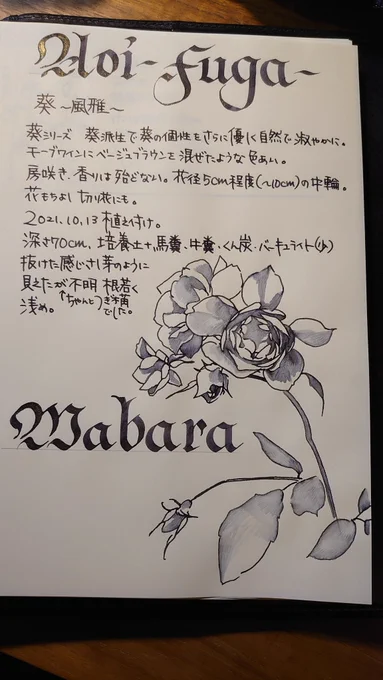 Aoi-Fuga-
葵 〜風雅〜
葵シリーズ 葵派生で葵の個性をさらに優しく自然で淑やかに。
モーブワインにベージュブラウンを混ぜたような色あい。
房咲き、香りは殆どない。花径5cm程度(〜10cm)の中輪。
花もちよし 切り花にも。
2021.10.13 植え付け。
深さ70cm、培養土+馬糞・牛糞・くん炭・バーキュライト(少)
抜けた感じさし芽のように
見えたが不明 根若く
↑ちゃんとつぎ木苗でした。
浅め。
Wabara